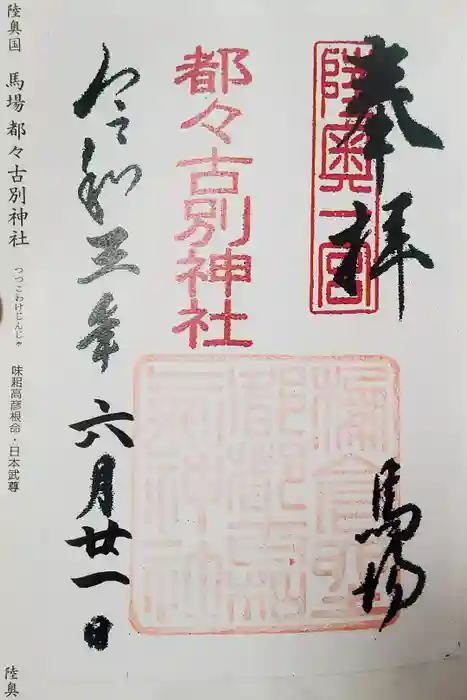 奉拝
陸奥一宮
馬場
都々古別神社
令和三年六月廿一日
陸奥国 馬場 都々古別神社
つつこわけじんじゃ
味耜高彦根命・日本武尊
陸奥